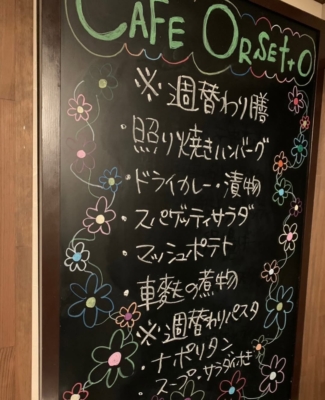 CAFE ORSETTO
※週替わり膳
・照り焼きハンバーグ
・ドライカレー・漬物
・スパゲッティサラダ
・マッシュポテト
・車麩の煮物
※週替わりパスタ
・ナポリタン
・スープ・サラダ付